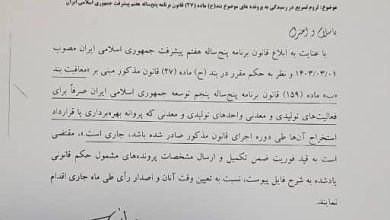 موضوع: لزوم تسریع در رسیدگی به پرونده های موضوع بند(ح) ماده (۲۷) قانون برنامه پنج‌ساله هفتم پیشرفت جمهوری اسلامی ایران
باسلام و احترام
با عنایت به ابلاغ قانون برنامه پنج‌ساله هفتم پیشرفت جمهوری اسلامی ایران مصوب
۱۴۰۳/۰۳/۰۱ و نظر به حکم مقرر در بند (ح) ماده (۲۷) قانون مذکور مبنی بر «معافیت بند
«ب» ماده (۱۵۹) قانون برنامه پنج‌ساله پنجم توسعه جمهوری اسلامی ایران صرفاً برای
فعالیت‌های تولیدی و معدنی و واحدهای تولیدی و معدنی که پروانه بهره‌برداری یا قرارداد
استخراج آن‌ها طی دوره اجرای قانون مذکور صادر شده باشد، جاری است.»، مقتضی
است به قید فوریت ضمن تکمیل و ارسال مشخصات پرونده‌های مشمول حکم قانونی
یادشده به شرح فایل پیوست، نسبت به تعیین وقت آنان و اصدار رأی طی ماه جاری اقدام
نمایند.